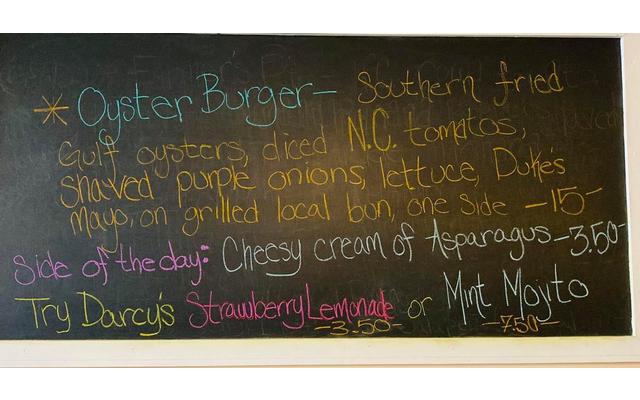 * Oyster Burger - Southern fried
Gulf oysters, diced N.C. tomatos,
shaved purple onions, lettuce, Duke's
mayo, on grilled local bun, one side -15-
Side of the day: Cheesy cream of Asparagus -3.50-
Try Darcy's Strawberry Lemonade or Mint Mojito
-3.50- -7.50-